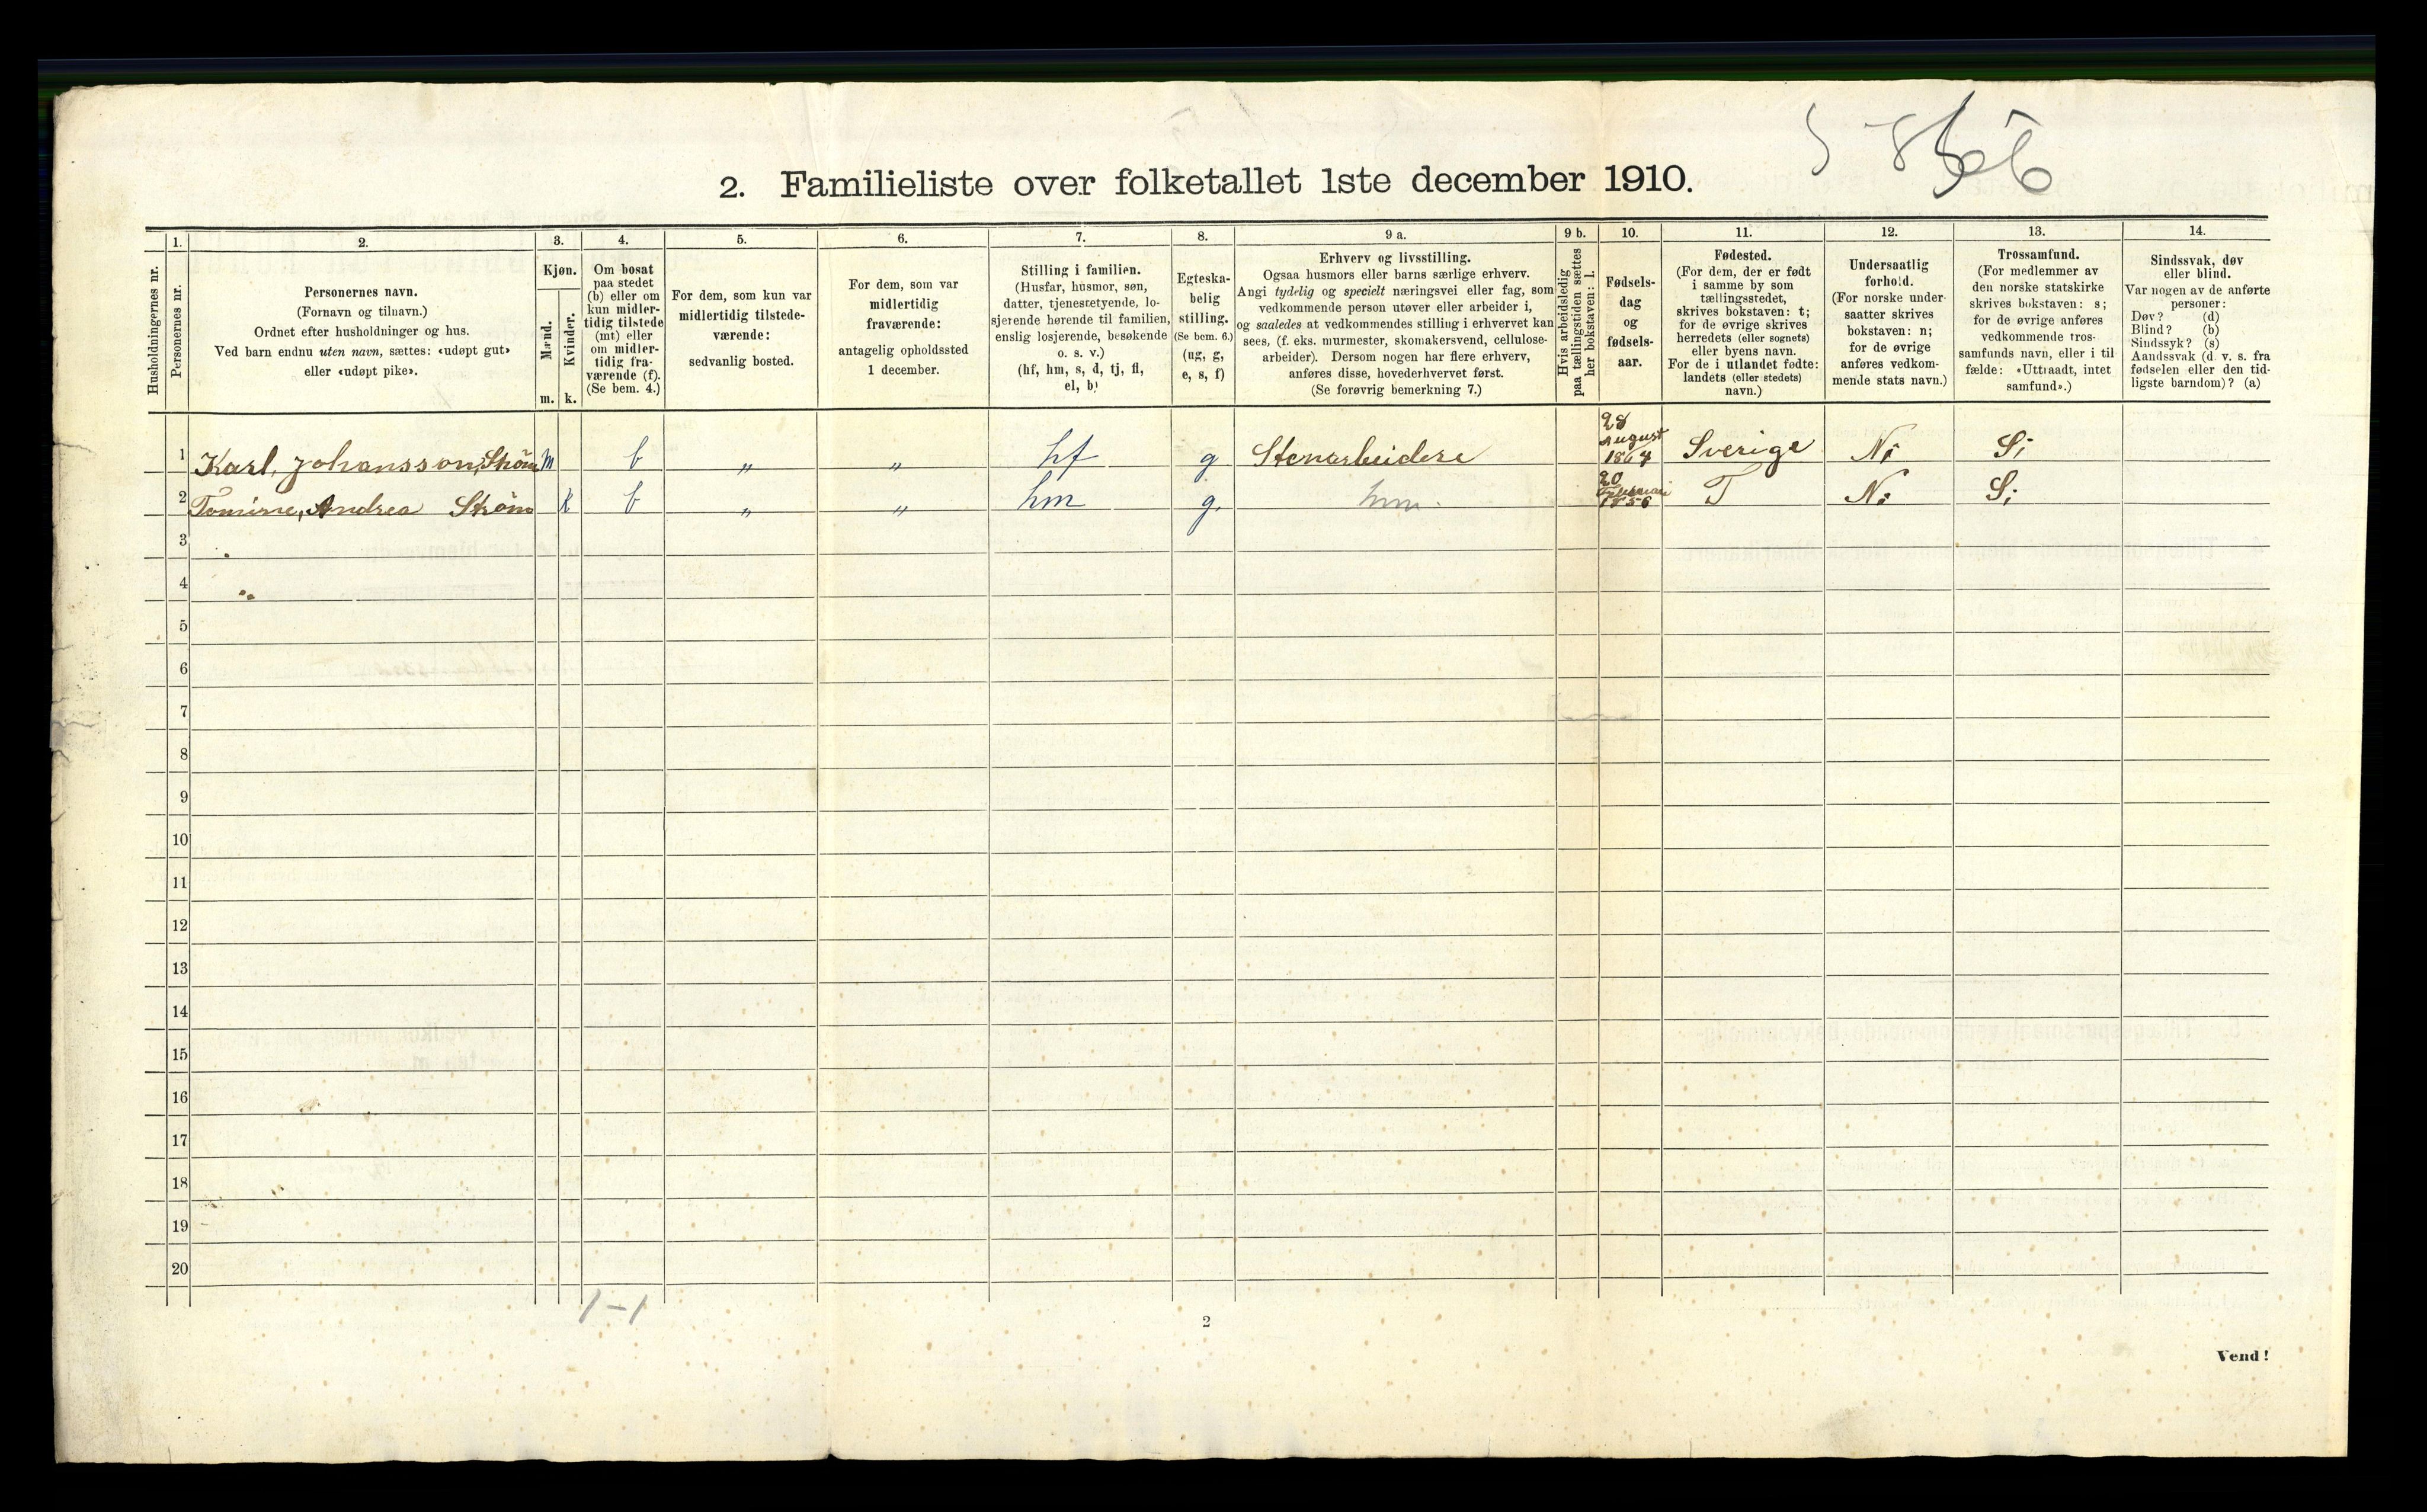 2. Familieliste over folketallet 1ste december 1910.
Husholdningernes nr.
1.
Personernes nr.
2.
Personernes navn.
(Fornavn og tilnavn.)
Ordnet efter husholdninger og hus.
Ved barn endnu uten navn, sættes: «udøpt gut»
eller «udøpt pike».
3.
Kjøn.
Mænd.
Kvinder.
m. k.
4.
Om bosat
paa stedet
(b) eller om
kun midler-
tidig tilstede
(mt) eller
om midler-
tidig fra-
værende (f).
(Se bem. 4.)
5.
For dem, som kun var
midlertidig tilstede-
værende:
sedvanlig bosted.
6.
For dem, som var
midlertidig
fraværende:
antagelig opholdssted
1 december.
7.
Stilling i familien.
(Husfar, husmor, søn,
datter, tjenestetyende, lo-
sjerende hørende til familien,
enslig losjerende, besøkende
o. s. v.)
(hf, hm, s, d, tj, fl,
el, b)
8.
Egteska-
belig
stilling.
(Se bem. 6.)
(ug, g,
e, s, f)
9 a.
Erhverv og livsstilling.
Ogsaa husmors eller barns særlige erhverv.
Angi tydelig og specielt næringsvei eller fag, som
vedkommende person utøver eller arbeider i,
og saaledes at vedkommendes stilling i erhvervet kan
sees, (f. eks. murmester, skomakersvend, cellulose-
arbeider). Dersom nogen har flere erhverv,
anføres disse, hovederhvervet først.
(Se forøvrig bemerkning 7.)
9 b.
Hvis arbeidsledig
paa tællingstiden sættes
her bokstaven: l.
10.
Fødsels-
dag
og
fødsels-
aar.
11.
Fødested.
(For dem, der er født
i samme by som
tællingsstedet,
skrives bokstaven: t;
for de øvrige skrives
herredets (eller sognets)
eller byens navn.
For de i utlandet fødte:
landets (eller stedets)
navn.)
12.
Undersaatlig
forhold.
(For norske under-
saatter skrives
bokstaven: n;
for de øvrige
anføres vedkom-
mende stats navn.)
13.
Trossamfund.
(For medlemmer av
den norske statskirke
skrives bokstaven: s;
for de øvrige anføres
vedkommende tros-
samfunds navn, eller i til-
fælde: «Uttraadt, intet
samfund».)
14.
Sindssvak, døv
eller blind.
Var nogen av de anførte
personer:
Døv? (d)
Blind? (b)
Sindssyk? (s)
Aandssvak (d. v. s. fra
fødselen eller den tid-
ligste barndom)? (a)
1 Karl, Johansson, Ström m b „ „ hf g Stenarbeidere 28 August 1864 Sverige N; S;
2 Tomine, Andrea Ström k b „ „ hm g. hm. 20 Februari 1856 T N; S;
3
4
5
6
7
8
9
10
11
12
13
14
15
16
17
18
19
20
1-1
2
Vend!